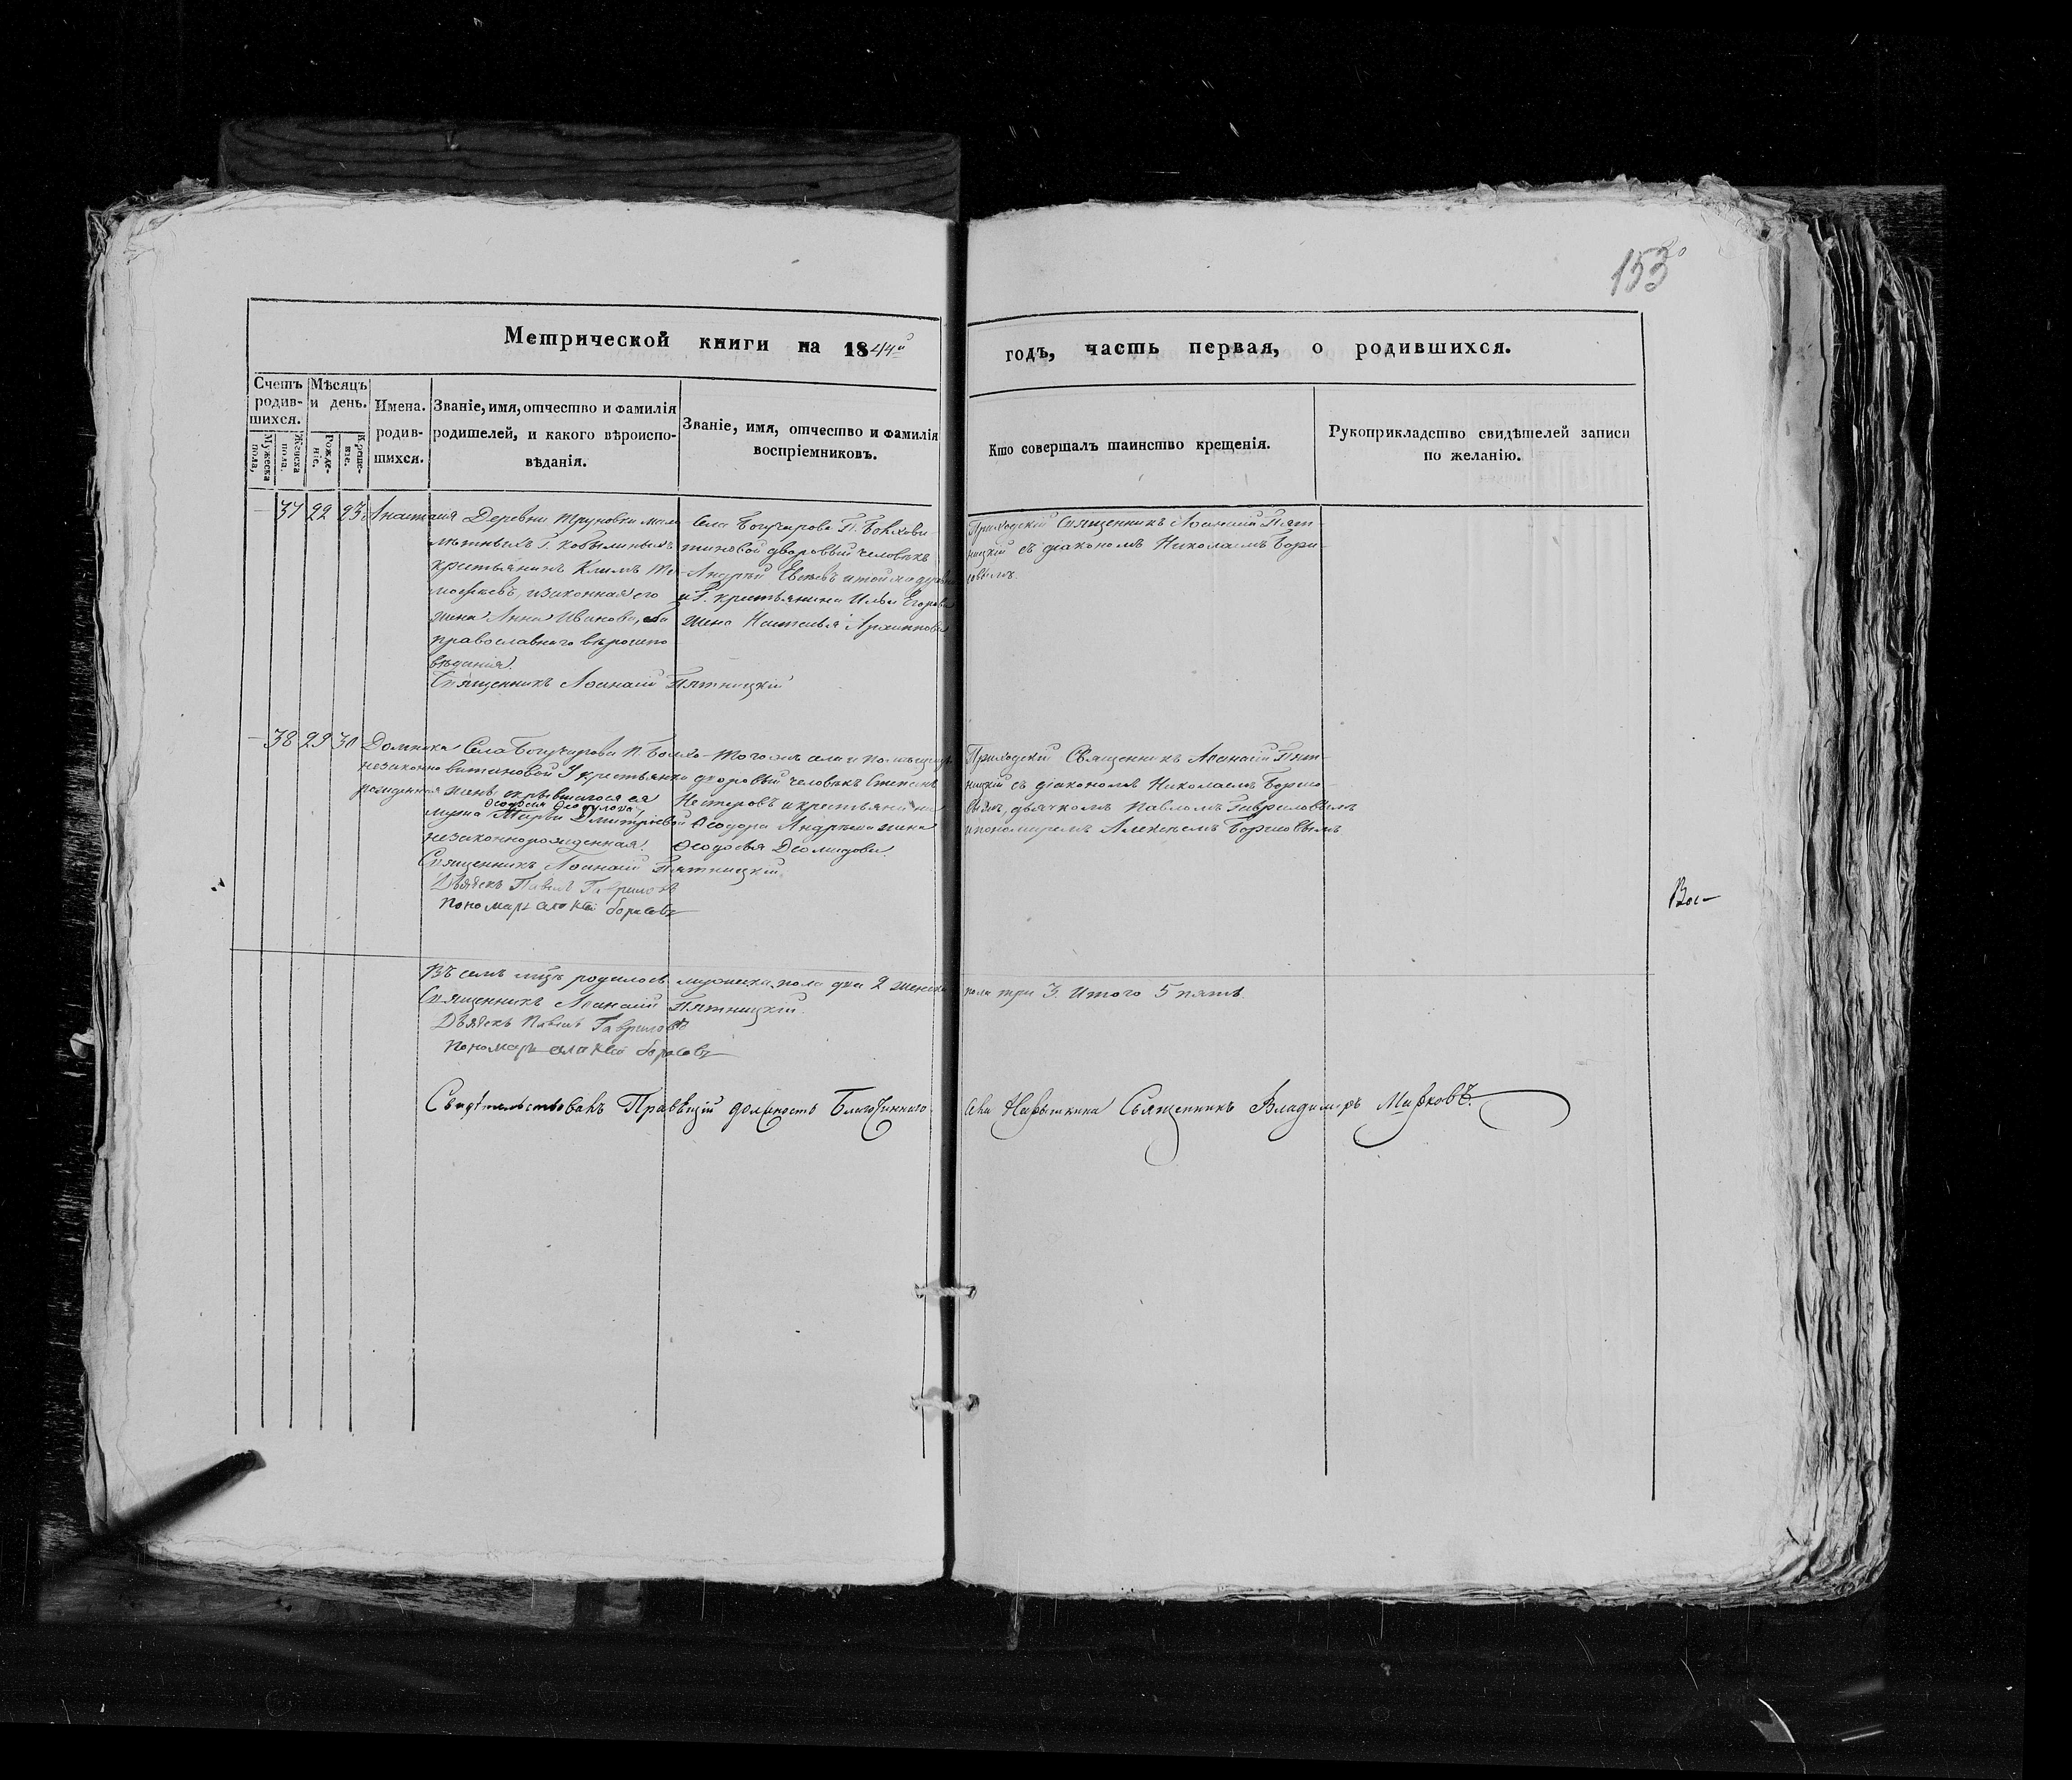 153
Метрической книги на 1844й
годъ, часть первая, о родившихся.
Счетъ родив-шихся.
Мужеска пола,
Женска пола.
Мѣсяцъ и день.
Рожде-ніе.
Креще-ніе.
Имена. родив-шихся.
Званіе, имя, отчество и фамилія
родителей, и какого вѣроиспо-
вѣданія.
Званіе, имя, отчество и фамилія
воспріемниковъ.
Кто совершалъ таинство крещенія.
Рукоприкладство свидѣтелей записи
по желанію.
37 22 23 Анастасія
Деревни Труновки мало
лѣтныхъ Г. Кобылиныхъ
крестьянинъ Климъ Ти
моѳеевъ, и законная его
жена Анна Иванова, оба
православнаго вѣроиспо
вѣданія.
Священникъ Аѳанасій Пятницкій
Села Богучарова П. Болхови
тиновой дворовый человѣкъ
Андрей и той же деревни
и Г. крестьянина Ильи Егорова
жена Наталья Архиппова
Приходскій Священникъ Аѳанасій Пят-
ницкій съ діакономъ Николаемъ Бори-
совымъ.
38 29 30 Домника
незаконно
рожденная
Села Богучарова П. Болхо-
витиновой У крестьянки
мужа Ѳедосья Ѳедулова
Марьи Дмитріевой
незаконнорожденная.
Священникъ Аѳанасій Пятницкій.
Дьячекъ Павелъ Гавриловъ
Пономарь Алексѣй Борисовъ
Того жъ села и помѣщицы
дворовый человѣкъ Степанъ
Нестеровъ и крестьянина
Ѳеодора Андреева жена
Ѳеодосья Діомидова.
Приходскій Священникъ Аѳанасій Пят-
ницкій съ діакономъ Николаемъ Борисо-
вымъ, дьячкомъ Павломъ Гавриловымъ
и пономаремъ Алексѣемъ Борисовымъ
Въ семъ м-цѣ родилось мужеска пола два 2 женска
пола три 3. Итого 5 пять.
Священникъ Аѳанасій Пятницкій.
Дьячекъ Павелъ Гавриловъ
Пономарь Алексѣй Борисовъ
Свидѣтельствовалъ Правящій должность Благочиннаго
села Священникъ Владимиръ Марковъ.